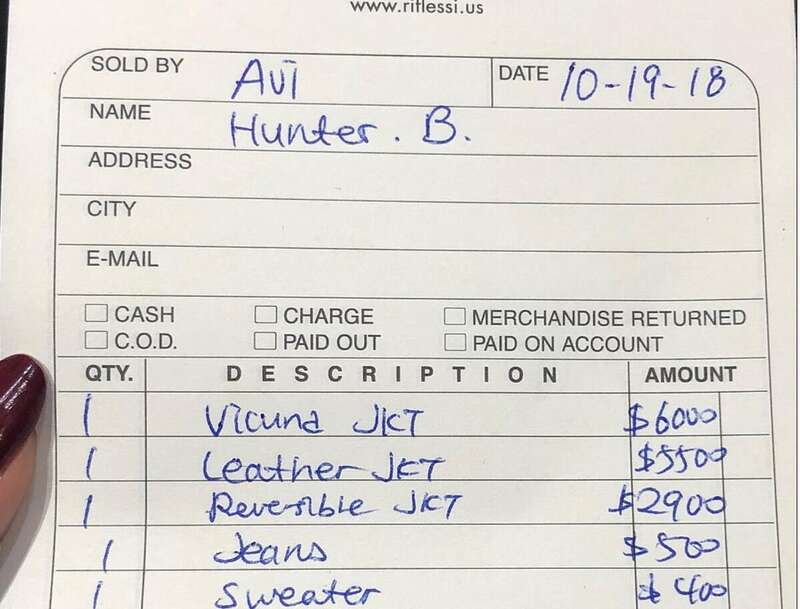 www.riflessi.us
SOLD BY Avi DATE 10-19-18
NAME Hunter. B.
ADDRESS
CITY
E-MAIL
CASH CHARGE MERCHANDISE RETURNED
C.O.D. PAID OUT PAID ON ACCOUNT
QTY. DESCRIPTION AMOUNT
1 Vicuna JKT $6000
1 Leather JKT $5500
1 Reversible JKT $2900
1 Jeans $500
1 Sweater $400